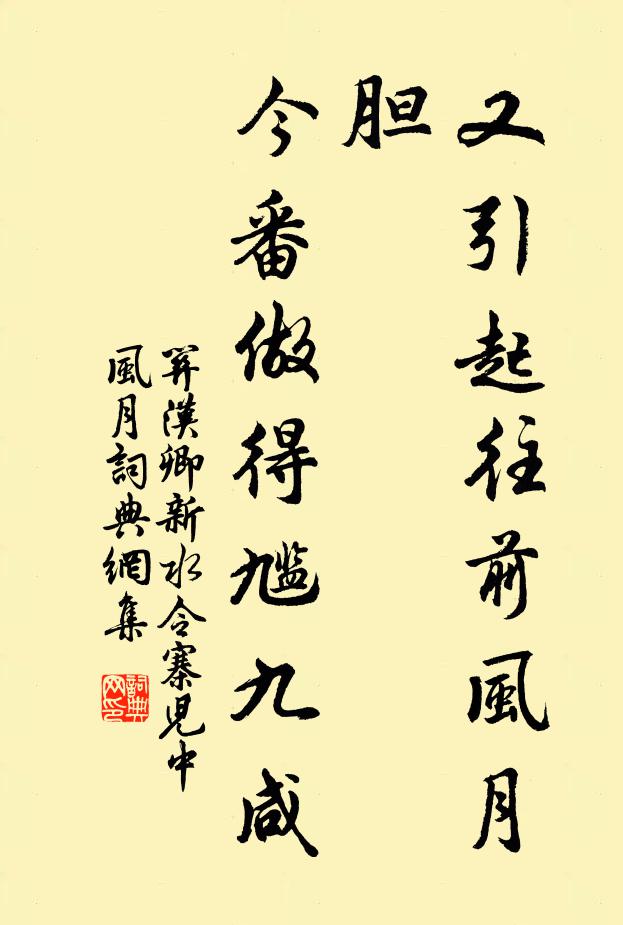 又引起往前風月
胆
今番做得尴九咸
關漢卿新水令寨児中
風月詞典網集
詞典网印